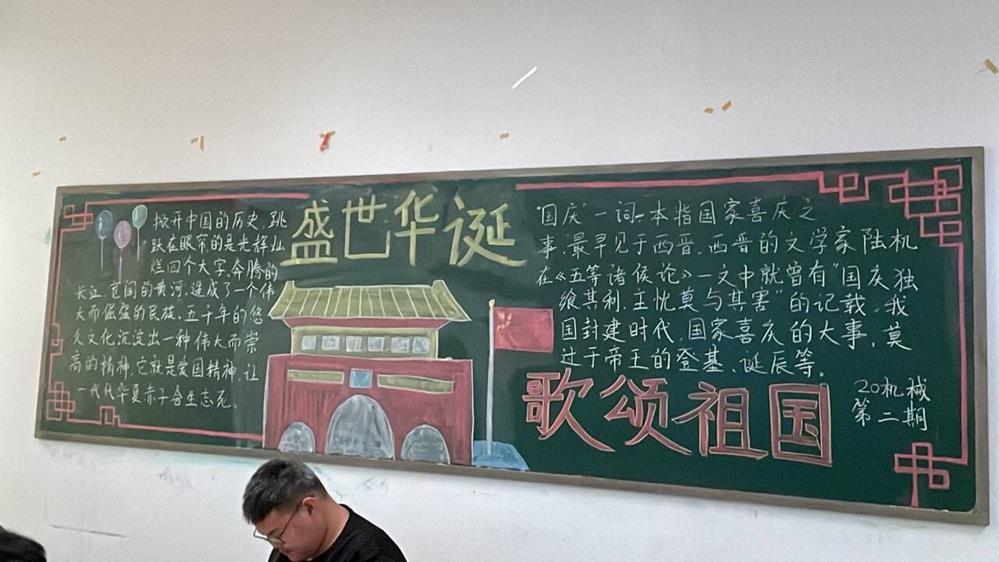 盛世华诞
掀开中国的历史,跳
跃在眼帘的是光辉灿
烂四个大字,奔腾的
长江,宽阔的黄河,造成了一个伟
大而倔强的民族,五千年的悠
久文化沉淀出一种伟大而崇
高的精神,它就是爱国精神,让
一代代华夏赤子舍生忘死。
"国庆"一词,本指国家喜庆之
事,最早见于西晋,西晋的文学家陆机
在《五等诸侯论》一文中就曾有"国庆独
飨其利,主忧莫与其害"的记载。我
国封建时代,国家喜庆的大事,莫
过于帝王的登基、诞辰等。
歌颂祖国
20机械
第二期